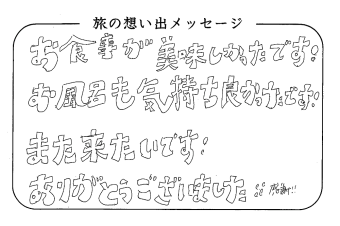 旅の想い出メッセージ
お食事が美味しかったです!
お風呂も気持ち良かったです!
また来たいです!
ありがとうございました!!